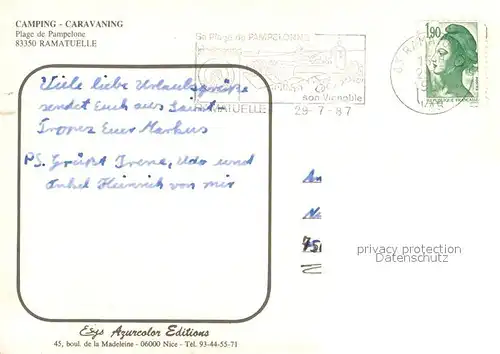 CAMPING - CARAVANING
Plage de Pampelone
83350 RAMATUELLE
Sa Plage de PAMPELONNE
son Vignoble
RAMATUELLE
29-7-87
1,90
REPUBLIQUE FRANÇAISE
Viele liebe Urlaubsgrüße
sendet Euch aus Saint
Tropez Euer Markus
PS. Grüßt Irene, Udo und
Onkel Heinrich von mir
privacy protection
Datenschutz
Edys Azurcolor Editions
45, boul. de la Madeleine - 06000 Nice - Tél. 93-44-55-71